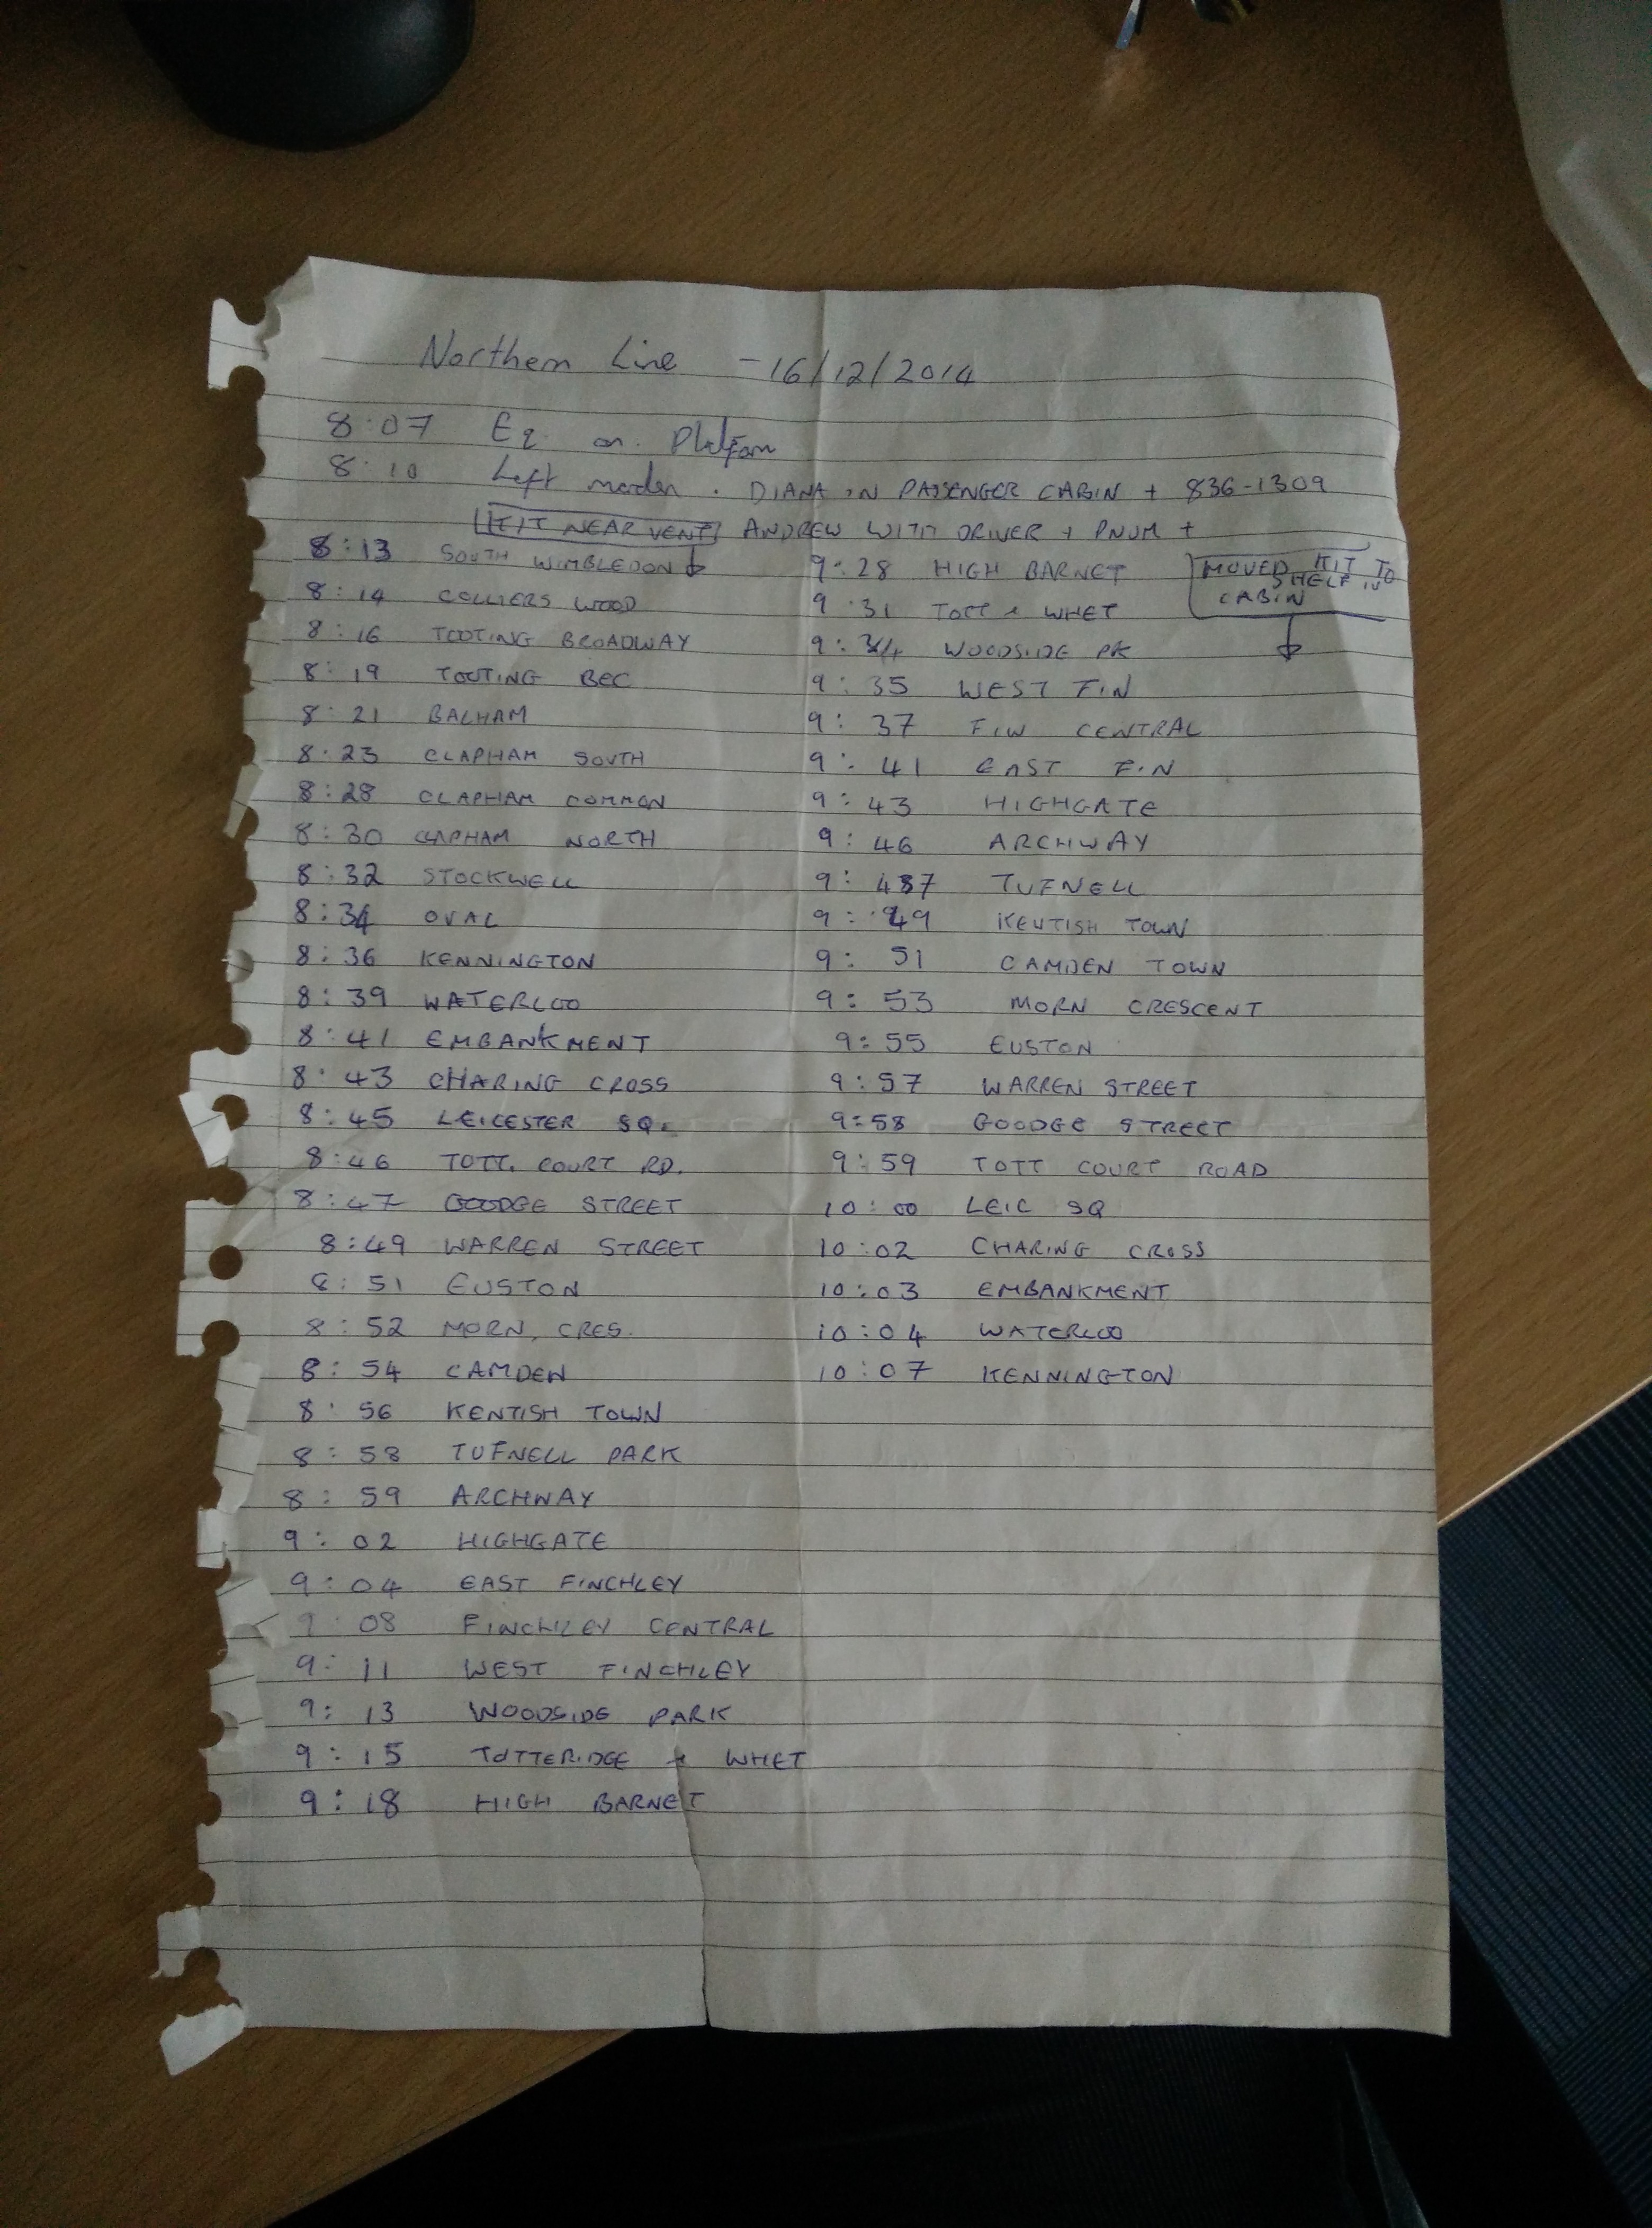 Northern Line - 16/12/2014
8:07 Eq. on Platform
8:10 Left morden. DIANA IN PASSENGER CABIN + 836-1309
KIT NEAR VENT ANDREW WITH DRIVER + PNUM +
8:13 SOUTH WIMBLEDON
8:14 COLLIERS WOOD
8:16 TOOTING BROADWAY
8:19 TOOTING BEC
8:21 BALHAM
8:23 CLAPHAM SOUTH
8:28 CLAPHAM COMMON
8:30 CLAPHAM NORTH
8:32 STOCKWELL
8:34 OVAL
8:36 KENNINGTON
8:39 WATERLOO
8:41 EMBANKMENT
8:43 CHARING CROSS
8:45 LEICESTER SQ.
8:46 TOTT. COURT RD.
8:47 GOODGE STREET
8:49 WARREN STREET
8:51 EUSTON
8:52 MORN. CRES.
8:54 CAMDEN
8:56 KENTISH TOWN
8:58 TUFNELL PARK
8:59 ARCHWAY
9:02 HIGHGATE
9:04 EAST FINCHLEY
9:08 FINCHLEY CENTRAL
9:11 WEST FINCHLEY
9:13 WOODSIDE PARK
9:15 TOTTERIDGE + WHET
9:18 HIGH BARNET
9:28 HIGH BARNET
MOVED KIT TO
SHELF IN
CABIN
9:31 TOTT + WHET
9:34 WOODSIDE PK
9:35 WEST FIN
9:37 FIN CENTRAL
9:41 EAST FIN
9:43 HIGHGATE
9:46 ARCHWAY
9:47 TUFNELL
9:49 KENTISH TOWN
9:51 CAMDEN TOWN
9:53 MORN CRESCENT
9:55 EUSTON
9:57 WARREN STREET
9:58 GOODGE STREET
9:59 TOTT COURT ROAD
10:00 LEIC SQ
10:02 CHARING CROSS
10:03 EMBANKMENT
10:04 WATERLOO
10:07 KENNINGTON